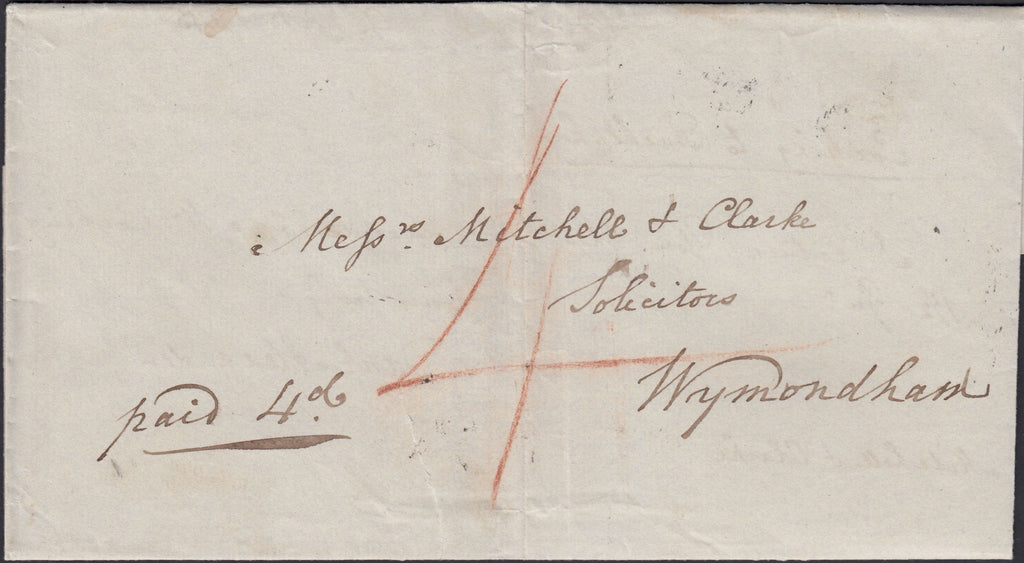 Messrs. Mitchell & Clarke
Solicitors
Wymondham
paid 4d
4